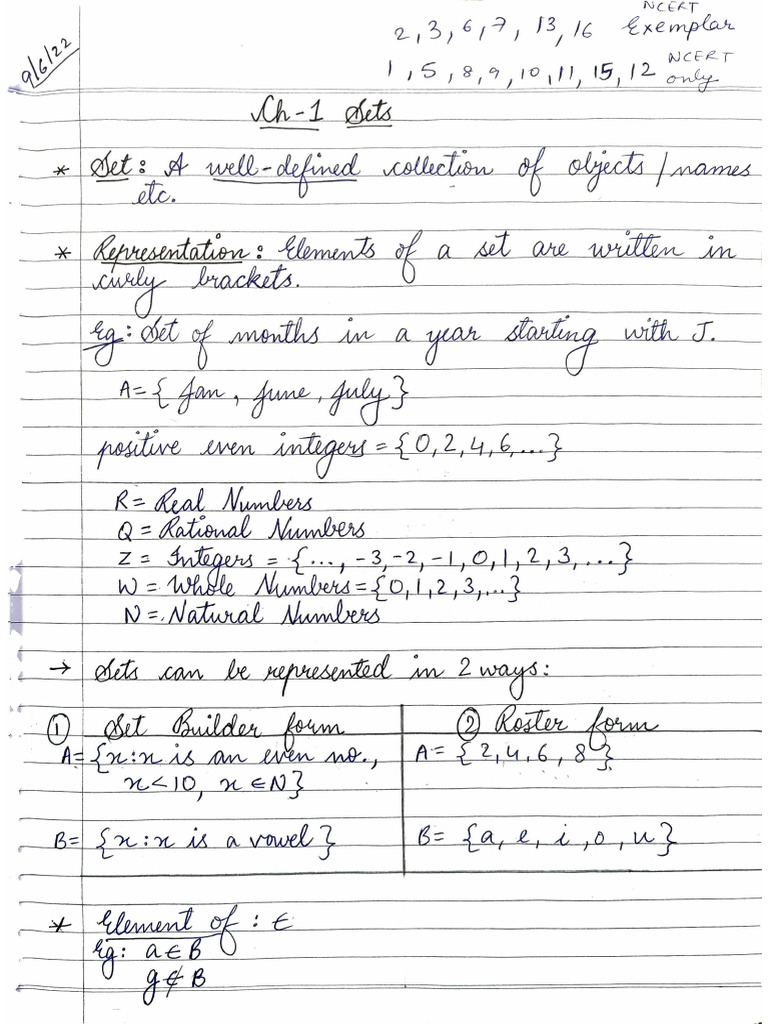 NCERT
2, 3, 6, 7, 13, 16 Exemplar
9/6/22
1, 5, 8, 9, 10, 11, 15, 12 NCERT only
Ch-1 Sets
* Set: A well-defined collection of objects/names
etc.
* Representation: Elements of a set are written in
curly brackets.
Eg: Set of months in a year starting with J.
A = { Jan, June, July }
positive even integers = {0, 2, 4, 6, ...}
R = Real Numbers
Q = Rational Numbers
Z = Integers = {..., -3, -2, -1, 0, 1, 2, 3, ...}
W = Whole Numbers = {0, 1, 2, 3, ...}
N = Natural Numbers
→ Sets can be represented in 2 ways:
① Set Builder form
A = {x : x is an even no.,
x < 10, x ∈ N}
B = {x : x is a vowel}
② Roster form
A = {2, 4, 6, 8}
B = {a, e, i, o, u}
* Element of : ∈
Eg: a ∈ B
g ∉ B